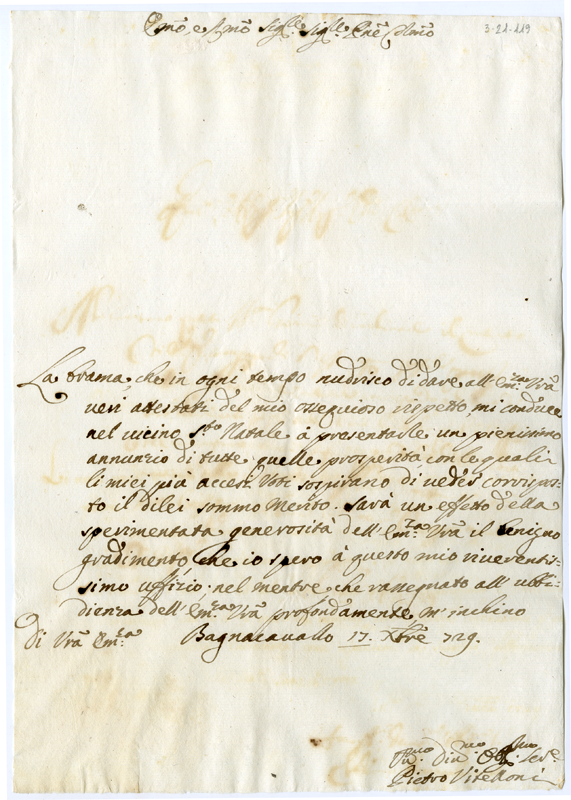 Emõ, e Rmõ Sig.re Sig.re Pnẽ Colmõ
3-21-119
La brama, che in ogni tempo nudrisco di dare all' Em.za Vrã
veri attestati del mio ossequioso rispetto, mi conduce
nel vicino S.to Natale à presentarle un pienissimo
annunzio di tutte quelle prosperità con le quali
li miei più accesi Voti sospirano di veder corrispos-
to il di lei sommo Merito. Sarà un effetto della
sperimentata generosità dell' Em.za Vrã il benigno
gradimento, che io spero à questo mio riverentis-
simo uffizio; nel mentre che rassegnato all' ubbi-
dienza dell' Em.za Vrã profondamente m' inchino
Di Vrã Em.za Bagnacavallo 17. Xbrẽ 729.
Vm.mo Div.mo Obl.mo Ser.e
Pietro Viteloni